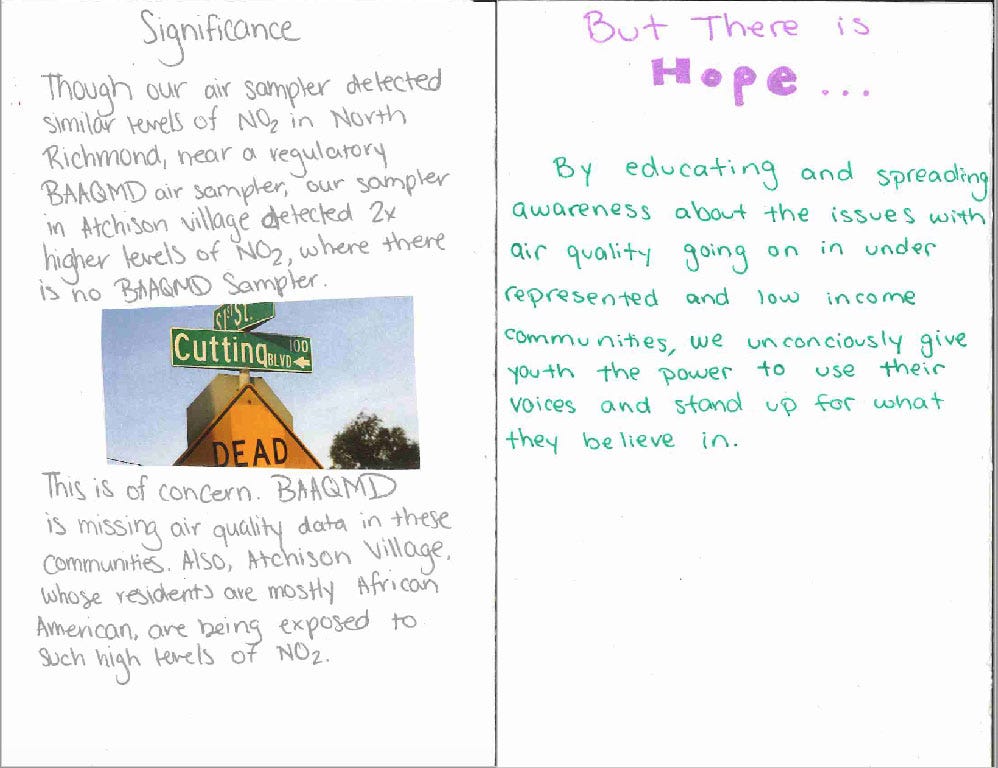 Significance
Though our air sampler detected
similar levels of NO2 in North
Richmond, near a regulatory
BAAQMD air sampler, our sampler
in Atchison village detected 2x
higher levels of NO2, where there
is no BAAQMD Sampler.
ST ST.
Cutting BLVD 100
DEAD
This is of concern. BAAQMD
is missing air quality data in these
communities. Also, Atchison Village,
whose residents are mostly African
American, are being exposed to
such high levels of NO2.
But There is
Hope...
By educating and spreading
awareness about the issues with
air quality going on in under
represented and low income
communities, we unconciously give
youth the power to use their
voices and stand up for what
they believe in.